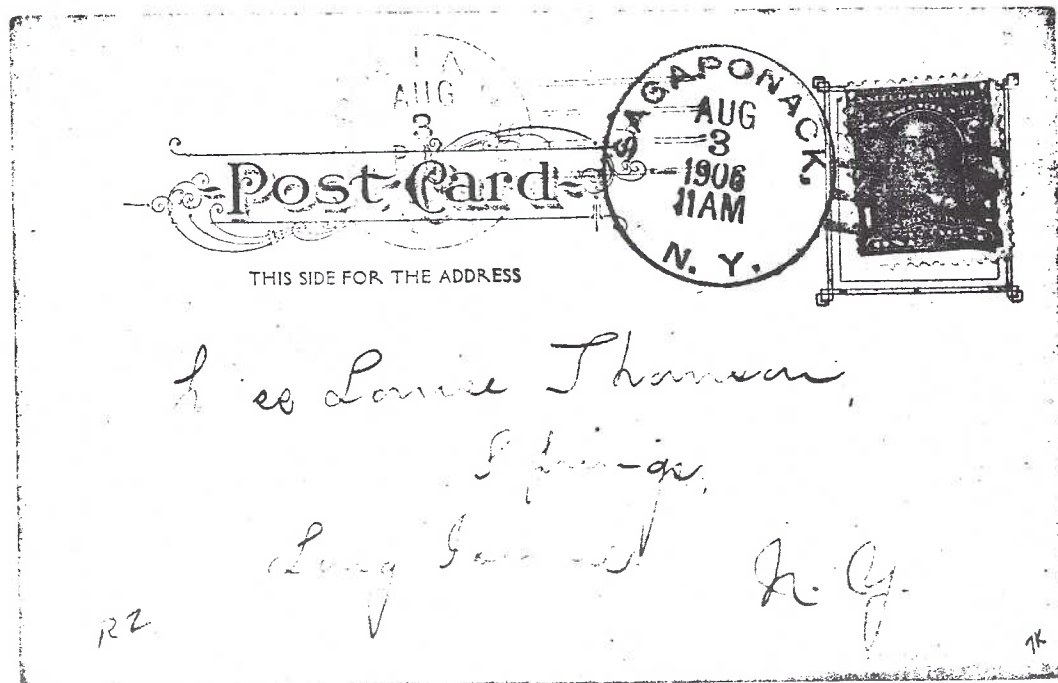 AUG
3
SAGAPONACK.
AUG
3
1906
11AM
N. Y.
Post Card
THIS SIDE FOR THE ADDRESS
Miss Louise Thomson,
Springs,
Long Island N. Y.
R2
7K